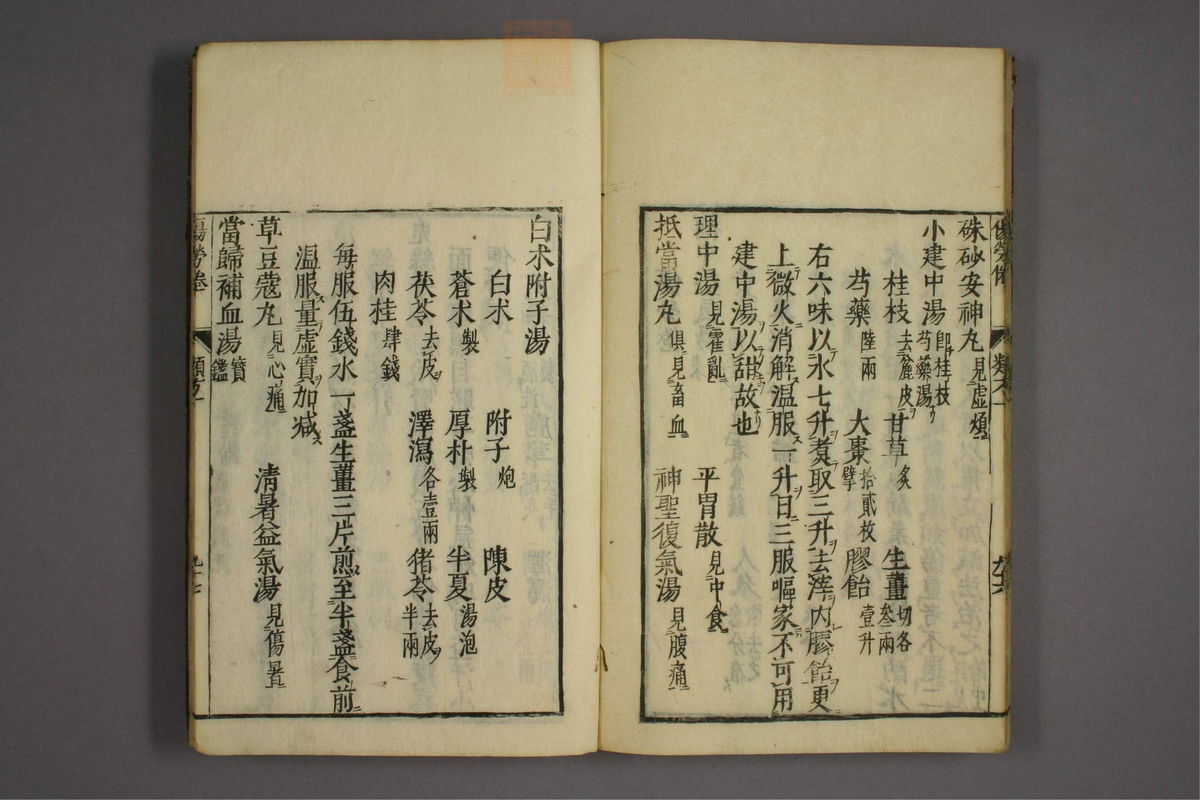 硃砂安神丸見虛煩
小建中湯即桂枝芍藥湯
桂枝去麄皮 甘草炙 生薑切各叁兩
芍藥陸兩 大棗拾貳枚擘 膠飴壹升
右六味以水七升煑取三升去滓內膠飴更
上微火消解温服一升日三服嘔家不可用
建中湯以甜故也
理中湯見霍亂 平胃散見中食
抵當湯丸俱見畜血 神聖復氣湯見腹痛
白术附子湯
白术 附子炮 陳皮
蒼术製 厚朴製 半夏湯泡
茯苓去皮 澤瀉各壹兩 猪苓去皮半兩
肉桂肆錢
每服伍錢水一盞生薑三片煎至半盞食前
温服量虛實加减
草豆蔻丸見心痛 清暑益氣湯見傷暑
當歸補血湯寳鑑